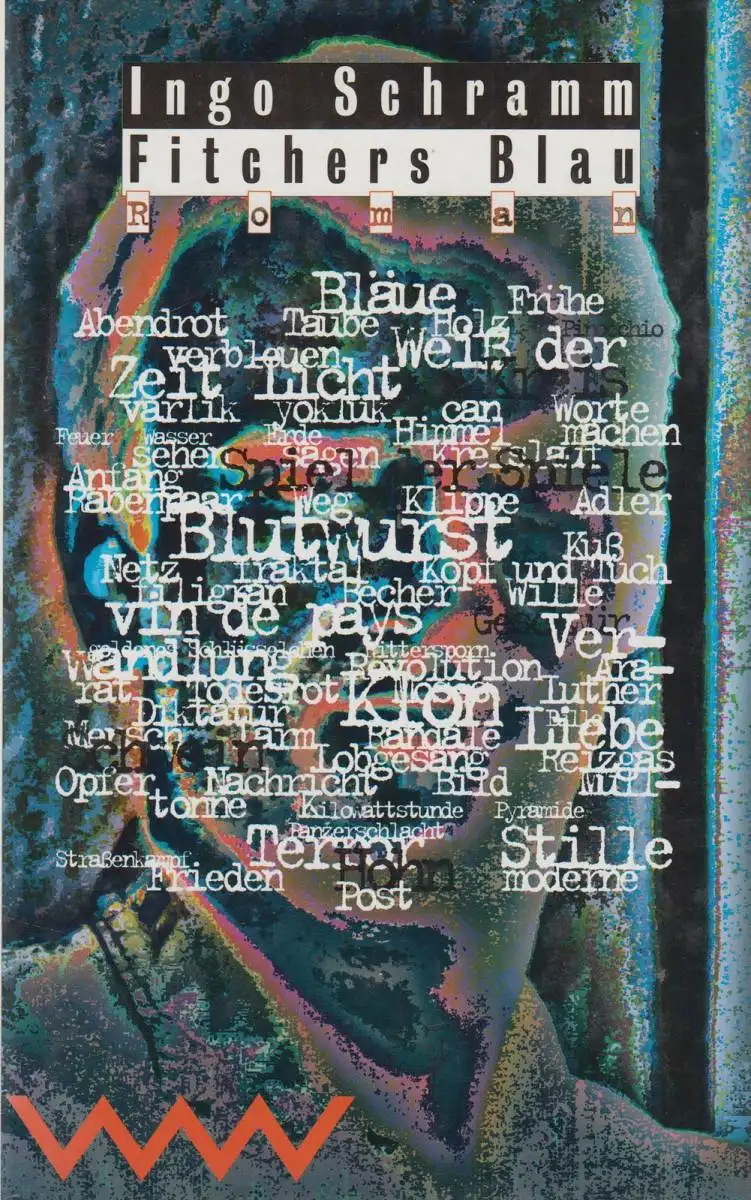 Ingo Schramm
Fitchers Blau
Roman
Bläue Frühe
Abendrot Taube Holz Pinocchio
verbleuen Weiß der
Zeit Licht
varlik yokluk can Worte
Feuer Wasser Erde Himmel machen
sehen sagen Kreislauf
Anfang Spiel der Spiele
Rabenpaar Weg Klippe Adler
Blutwurst Kuß
Netz fraktal Kopf und Tuch
filigran Becher Wille
vin de pays Ver-
goldenes Schlüsselchen Rittersporn
wandlung Revolution Ara-
rat Todesrot Klon luther
Diktatur
Mensch Lärm Randale Liebe
Schwein Lobgesang Reizgas
Opfer Nachricht Bild Müll-
tonne Kilowattstunde Pyramide
Panzerschlacht
Straßenkampf Terror Stille
Frieden Hohn moderne
Post